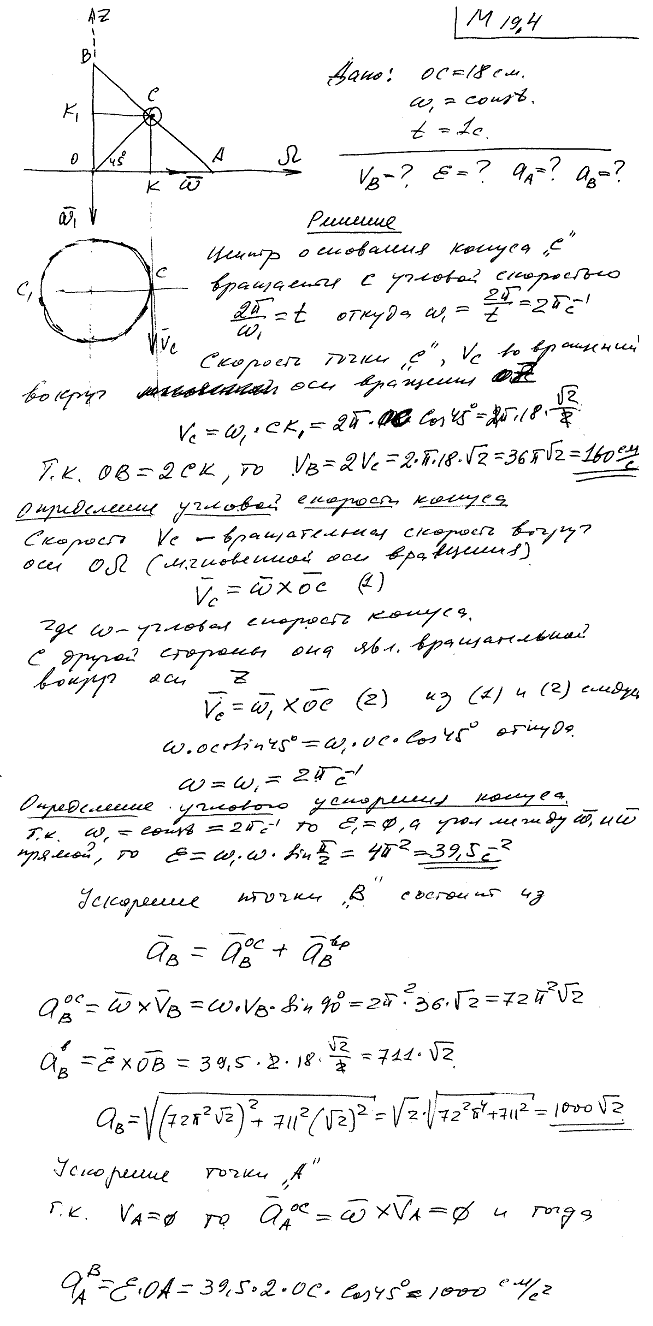 М 19,4
Z
B
C
K₁
O
45°
A
Ω
K
ω̄
ω̄₁
C₁
C
V̄c
Дано: OC = 18 см.
ω₁ = const.
t = 1c.
V_B - ? ε = ? a_A = ? a_B = ?
Решение
Центр основания конуса „С"
вращается с угловой скоростью
2π/ω₁ = t откуда ω₁ = 2π/t = 2π c⁻¹
Скорость точки „С", Vc во вращении
вокруг оси вращения OZ
Vc = ω₁·CK₁ = 2π·OC cos45° = 2π·18·√2/2
Т.к. OB = 2CK, то V_B = 2Vc = 2·π·18·√2 = 36π√2 = 160 см/с
Определение угловой скорости конуса
Скорость Vc – вращательная скорость вокруг
оси OΩ (мгновенной оси вращения)
V̄c = ω̄ × O̅C̅ (1)
где ω – угловая скорость конуса.
С другой стороны она явл. вращательной
вокруг оси Z
V̄c = ω̄₁ × O̅C̅ (2) из (1) и (2) следует
ω·oc·sin45° = ω₁·oc·cos45° откуда
ω = ω₁ = 2π c⁻¹
Определение углового ускорения конуса.
Т.к. ω₁ = const = 2π c⁻¹ то ε₁ = 0, а угол между ω̄₁ и ω̄
прямой, то ε = ω₁·ω·sin π/2 = 4π² = 39,5 c⁻²
Ускорение точки „B" состоит из
ā_B = ā_B^ос + ā_B^вр
a_B^ос = ω̄ × V̄_B = ω·V_B·sin90° = 2π²·36·√2 = 72π²√2
a_B^в = ε̄ × O̅B̅ = 39,5·2·18·√2/2 = 711·√2
a_B = √((72π²√2)² + 711²(√2)²) = √2·√(72²π⁴ + 711²) = 1000√2
Ускорение точки „A"
Т.к. V_A = 0 то ā_A^ос = ω̄ × V̄_A = 0 и тогда
a_A^в = ε·OA = 39,5·2·OC·cos45° = 1000 см/с²